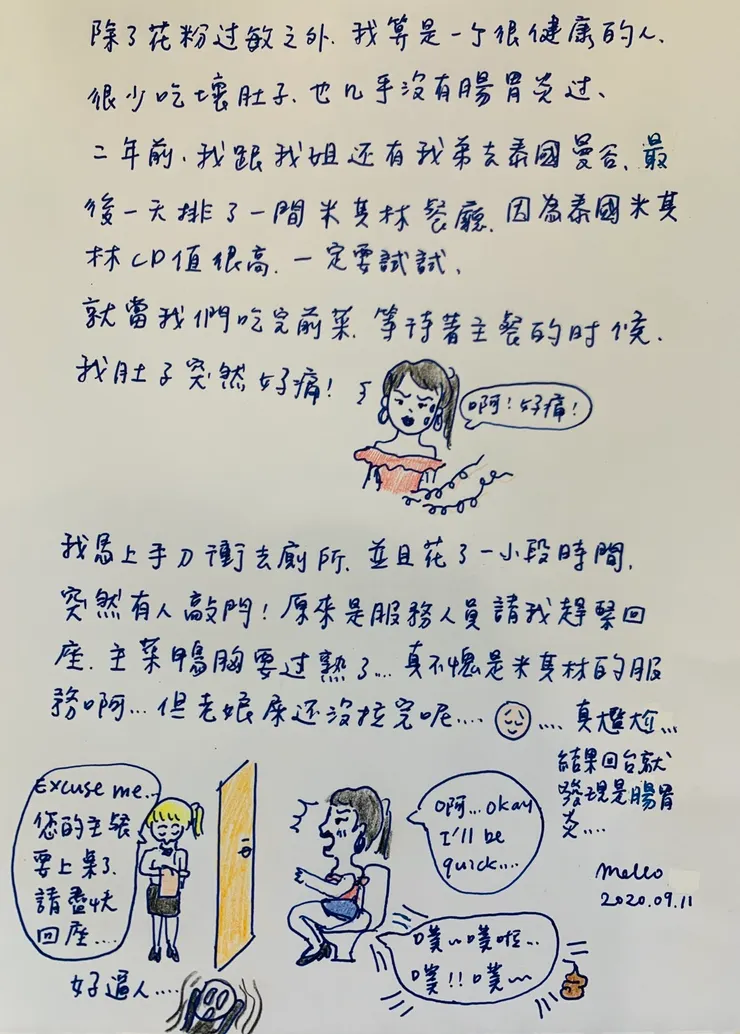 除了花粉过敏之外、我算是一个很健康的人、
很少吃壞肚子、也几乎沒有腸胃炎过、
二年前、我跟我姐还有我弟去泰國曼谷、最
後一天排了一間米其林餐廳、因為泰國米其
林CP值很高、一定要試試、
就當我們吃完前菜、等待著主餐的时候、
我肚子突然好痛!
啊!好痛!
我馬上手刀衝去廁所、並且花了一小段時間、
突然有人敲門!原來是服務人員請我趕緊回
座、主菜鴨胸要过熟了...真不愧是米其林的服
務啊...但老娘屎还沒拉完呢....
....真尷尬...
結果回台就
發現是腸胃
炎....
Mello
2020.09.11
Excuse me..
您的主餐
要上桌了、
請盡快
回座....
啊...okay
I'll be
quick....
噗~噗啦...
噗!!噗~
好逼人....